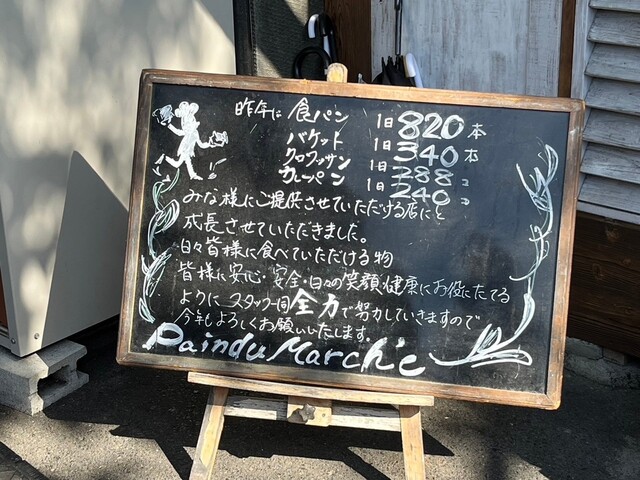 昨年は 食パン 1日 820本
バケット 1日 340本
クロワッサン 1日 288コ
カレーパン 1日 240コ
みな様にご提供させていただける店にと
成長させていただきました。
日々皆様に食べていただける物
皆様に安心・安全・日々の笑顔、健康にお役にたてる
ようにスタッフ一同全力で努力していきますので
今年もよろしくお願いいたします。
Paindu Marche